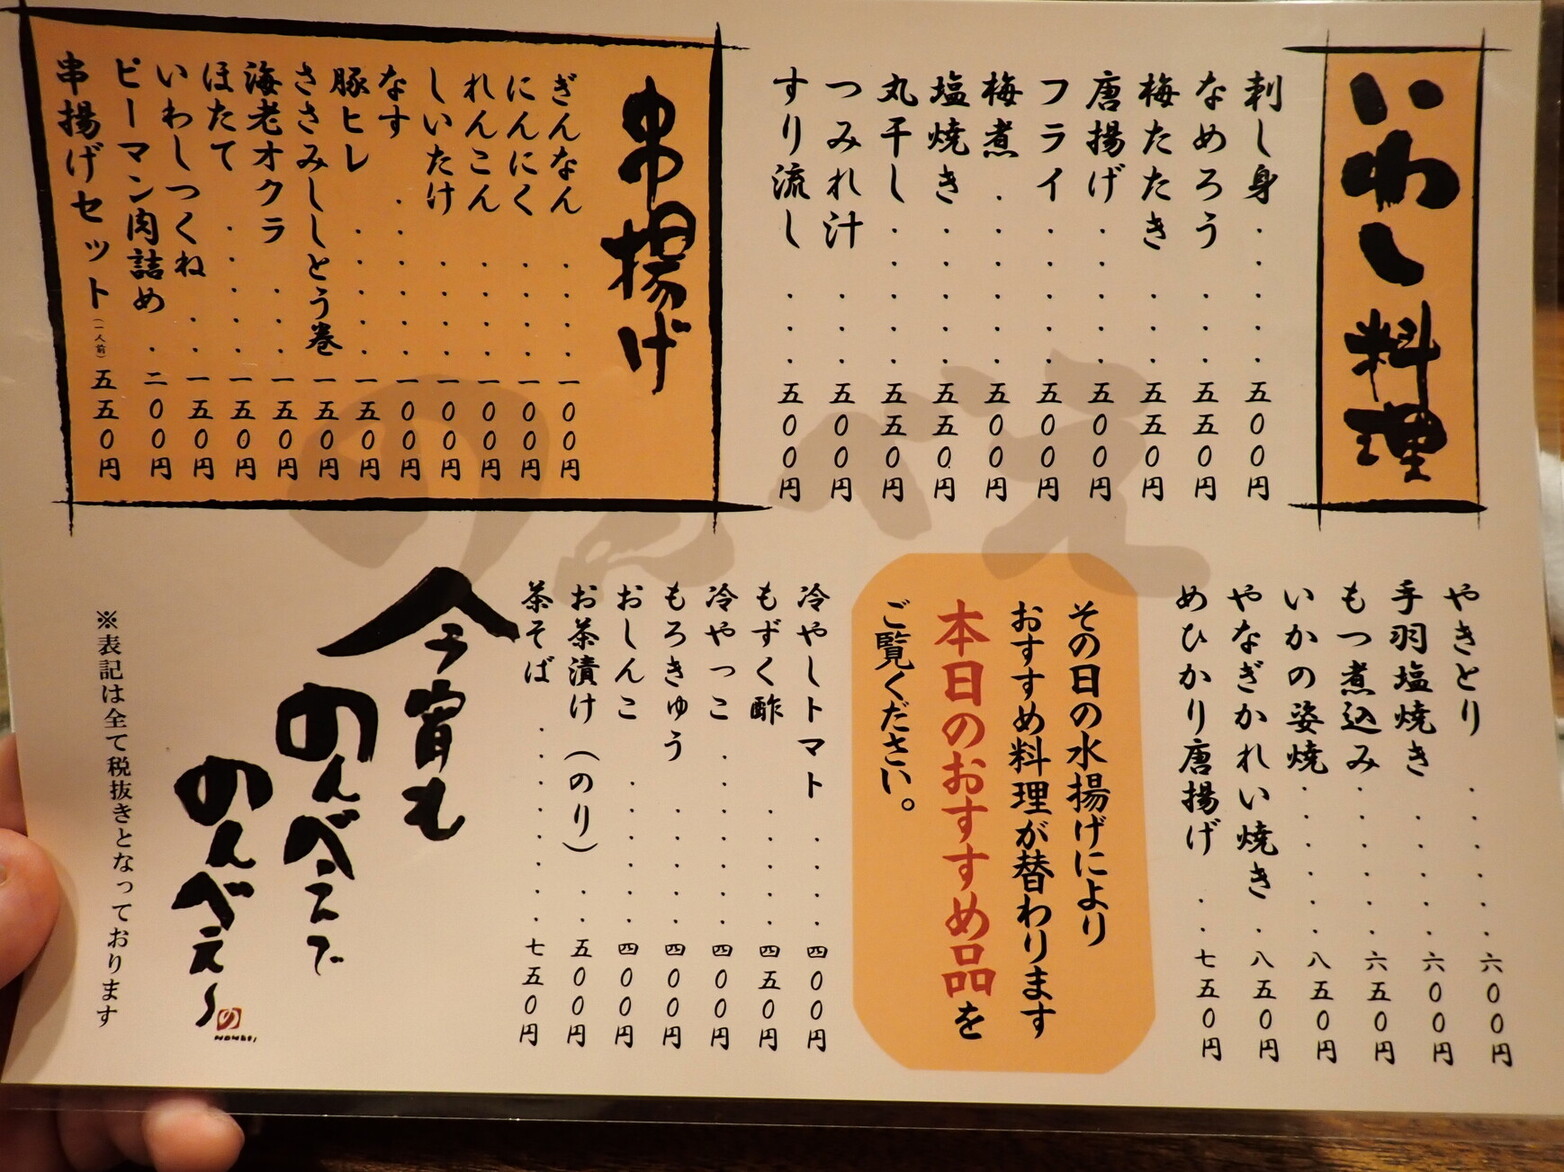 いわし料理
刺し身・・・・・五〇〇円
なめろう・・・・・五五〇円
梅たたき・・・・五五〇円
唐揚げ・・・・・五〇〇円
フライ・・・・・五〇〇円
梅煮・・・・・・五〇〇円
塩焼き・・・・・五五〇円
丸干し・・・・・五五〇円
つみれ汁・・・五〇〇円
すり流し・・・五〇〇円
串揚げ
ぎんなん・・・・一〇〇円
にんにく・・・・一〇〇円
れんこん・・・・一〇〇円
しいたけ・・・・一〇〇円
なす・・・・・・一〇〇円
豚ヒレ・・・・・一五〇円
ささみししとう巻一五〇円
海老オクラ・・・一五〇円
ほたて・・・・・一五〇円
いわしつくね・・一五〇円
ピーマン肉詰め・二〇〇円
串揚げセット（一人前）五五〇円
のんべえ
やきとり・・・・・・六〇〇円
手羽塩焼き・・・・・六〇〇円
もつ煮込み・・・・・六五〇円
いかの姿焼・・・・・・八五〇円
やなぎかれい焼き・・八五〇円
めひかり唐揚げ・・七五〇円
その日の水揚げにより
おすすめ料理が替わります
本日のおすすめ品を
ご覧ください。
冷やしトマト・・・・四〇〇円
もずく酢・・・・・四五〇円
冷やっこ・・・・・・・四〇〇円
もろきゅう・・・・・四〇〇円
おしんこ・・・・・・四〇〇円
お茶漬け（のり）・・五〇〇円
茶そば・・・・・・・・七五〇円
今宵も
のんべえで
のんべえ〜
の
NONBEI
※表記は全て税抜きとなっております